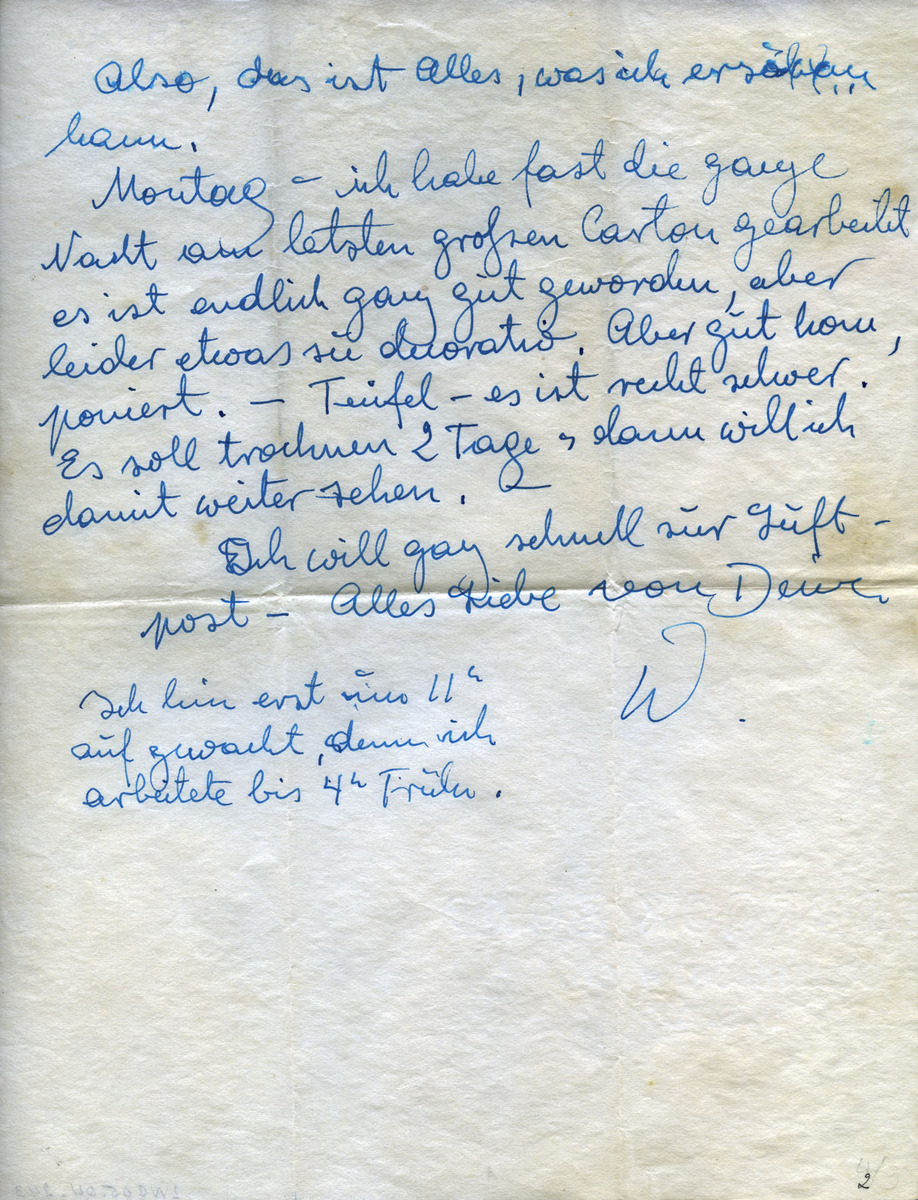 Also, das ist Alles, was ich erzählen
kann.
Montag – ich habe fast die ganze
Nacht am letzten großen Carton gearbeitet
es ist endlich ganz gut geworden, aber
leider etwas zu decorativ. Aber gut kom,
poniert. – Teufel – es ist recht schwer.
Es soll trocknen 2 Tage, dann will ich
damit weiter sehen. –
Ich will ganz schnell zur Luft-
post – Alles Liebe von Deinem
W.
Ich bin erst um 11h
aufgewacht, denn ich
arbeitete bis 4h Früh.
2